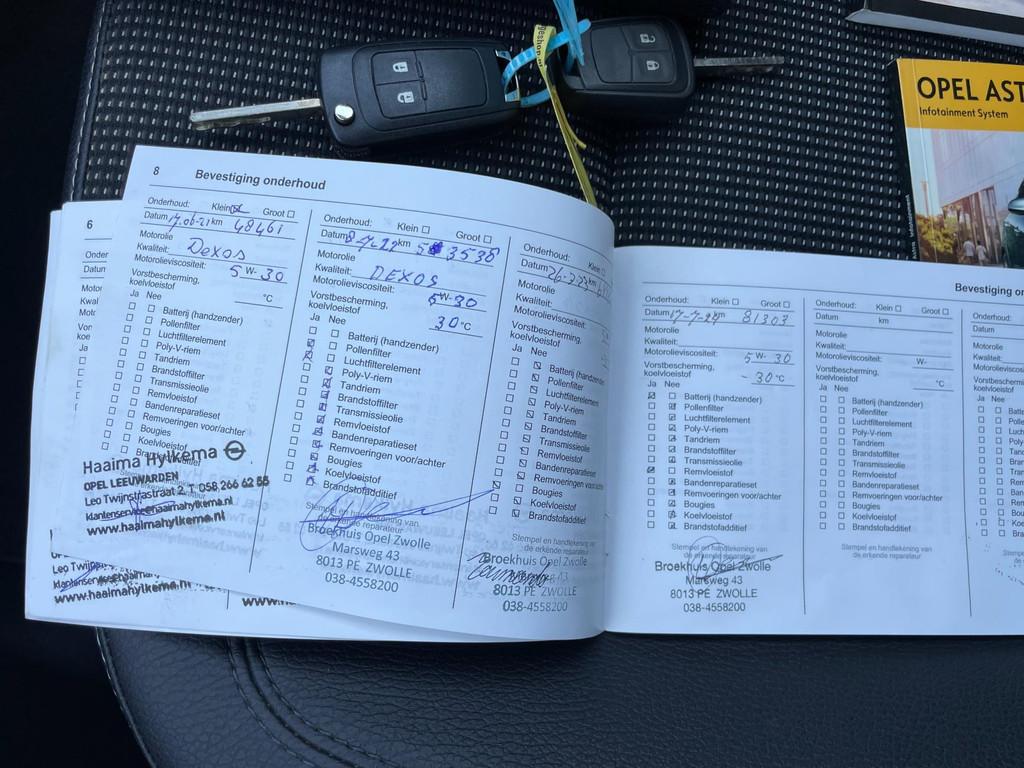 geshop.nl
OPEL AST
Infotainment System
6
8 Bevestiging onderhoud
Onderhoud: Klein Groot
Datum 17-06-21 km 48461
Motorolie
Kwaliteit: Dexos
Motorolieviscositeit: 5 W- 30
Vorstbescherming,
koelvloeistof °C
Ja Nee
Batterij (handzender)
Pollenfilter
Luchtfilterelement
Poly-V-riem
Tandriem
Brandstoffilter
Transmissieolie
Remvloeistof
Bandenreparatieset
Remvoeringen voor/achter
Bougies
Koelvloeistof
Haaima Hylkema
OPEL LEEUWARDEN
Leo Twijnstrastraat 2, T. 058 266 62 55
klantenservice@haaimahylkema.nl
www.haaimahylkema.nl
Onderhoud: Klein Groot
Datum 8-7-22 km 53538
Motorolie
Kwaliteit: DEXOS
Motorolieviscositeit: 5W-30
Vorstbescherming,
koelvloeistof 30°C
Ja Nee
Batterij (handzender)
Pollenfilter
Luchtfilterelement
Poly-V-riem
Tandriem
Brandstoffilter
Transmissieolie
Remvloeistof
Bandenreparatieset
Remvoeringen voor/achter
Bougies
Koelvloeistof
Brandstofadditief
Stempel en handtekening van
Broekhuis Opel Zwolle
Marsweg 43
8013 PE ZWOLLE
038-4558200
Onderhoud: Klein
Datum 26-7-23 km
Motorolie
Kwaliteit:
Motorolieviscositeit:
Vorstbescherming,
koelvloeistof
Ja Nee
Batterij (handzender)
Pollenfilter
Luchtfilterelement
Poly-V-riem
Tandriem
Brandstoffilter
Transmissieolie
Remvloeistof
Bandenreparatieset
Remvoeringen voor/achter
Bougies
Koelvloeistof
Brandstofadditief
Stempel en handtekening van
de erkende reparateur
Broekhuis Opel Zwolle
43
8013 PE ZWOLLE
038-4558200
Onderhoud: Klein Groot
Datum 17-7-24 km 81303
Motorolie
Kwaliteit:
Motorolieviscositeit: 5 W- 30
Vorstbescherming,
koelvloeistof - 30°C
Ja Nee
Batterij (handzender)
Pollenfilter
Luchtfilterelement
Poly-V-riem
Tandriem
Brandstoffilter
Transmissieolie
Remvloeistof
Bandenreparatieset
Remvoeringen voor/achter
Bougies
Koelvloeistof
Brandstofadditief
Stempel en handtekening van
de erkende reparateur
Broekhuis Opel Zwolle
Marsweg 43
8013 PE ZWOLLE
038-4558200
Onderhoud: Klein Groot
Datum km
Motorolie
Kwaliteit:
Motorolieviscositeit: W-
Vorstbescherming,
koelvloeistof °C
Ja Nee
Batterij (handzender)
Pollenfilter
Luchtfilterelement
Poly-V-riem
Tandriem
Brandstoffilter
Transmissieolie
Remvloeistof
Bandenreparatieset
Remvoeringen voor/achter
Bougies
Koelvloeistof
Brandstofadditief
Stempel en handtekening van
de erkende reparateur
Bevestiging on
Onderhoud:
Datum
Motorolie
Kwaliteit:
Motorolieviscos
Vorstbescherm
koelvloeistof
Ja Nee
Batt
Poll
Luch
Poly
Tan
Bra
Tra
Re
Ba
Re
Bo
Ko
Bra
Leo Twijn
www.haaimahylkema.nl
www.